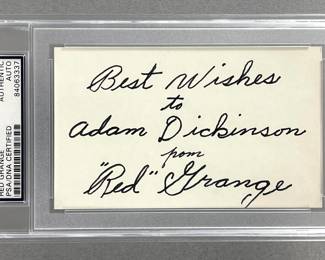 Best Wishes
to
Adam Dickinson
from
"Red" Grange
RED GRANGE
PSA/DNA CERTIFIED
AUTHENTIC
AUTO
84063337